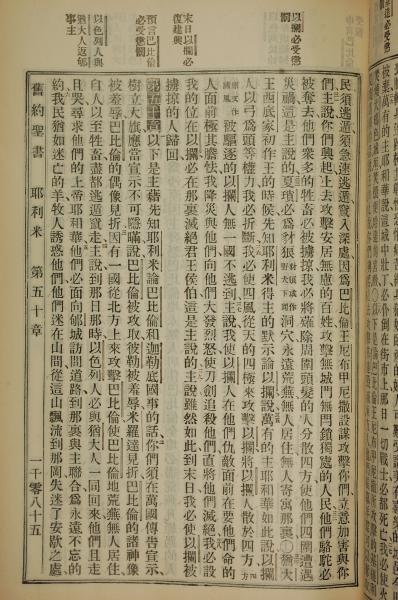 以攔必受懲罰
末日以攔必復建興
預言巴比倫必受懲罰
以色列人與猶大人返邺事主
民須逃遁須急速逃遁竄入深處因爲巴比倫王尼布甲尼撒設謀攻擊你們立意加害與你
們主說你們興起上去攻擊安居無慮的百姓攻擊無城門無閂鎖獨處的人民他們駱駝必
被奪去他們衆多的牲畜必被擄掠我必將薙除周圍頭髮的人分散四方使他們四圍遭遇
災禍這是主說的夏瑣必爲豺狼洞穴永遠荒蕪無人居住無人寄寓那裏〇猶大
王西底家初作王的時候先知耶利米得主的默示論以攔說萬有的主耶和華如此說以攔
人以弓爲頭等權力我必折斷我必使四風從天的四極來攻擊以攔將以攔人散於四方
被驅逐的以攔人無一國不逃到主說我使以攔人在他們仇敵面前在要他們命的
人面前極其膽怯我降災與他們向他們大發烈怒使刀劍追殺他們直將他們滅絕我必設
我的位在以攔必在那裏滅絕君王侯伯這是主說的主說雖然如此到末日我必使以攔被
擄掠的人歸回
第五十章以下是主藉先知耶利米論巴比倫和迦勒底國事的話你們須在萬國傳告宣示
樹立大旗應當宣示不可隱瞞說巴比倫被攻取彼勒被羞辱米羅達見折巴比倫的諸神像
被羞辱巴比倫的偶像見折因有一國從北方上來攻擊巴比倫使巴比倫地荒蕪無人居住
自人以至牲畜盡都逃遁竄走主說到那日那時以色列人必與猶大人一同回來他們且走
且哭尋求他們的上帝耶和華他們必面向郇城訪問道路到那裏與主聯合爲永遠不忘的
約我民猶如迷亡的羊牧人誘惑他們使他們迷在山間從這山飄流到那岡失迷了安歇之處
舊約聖書
耶利米
第五十章
一千零八十五